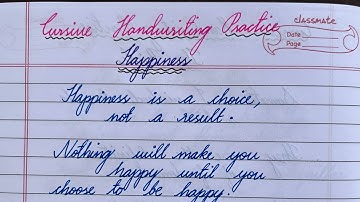 Cursive Handwriting Practice
classmate
Date
Page
Happiness
Happiness is a choice,
not a result.
Nothing will make you
happy until you
choose to be happy.